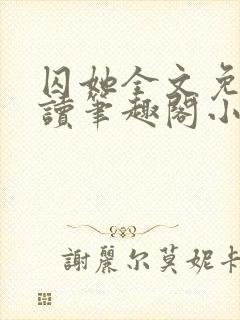 囚她全文免
讀筆趣閣小
謝麗尔莫妮卡